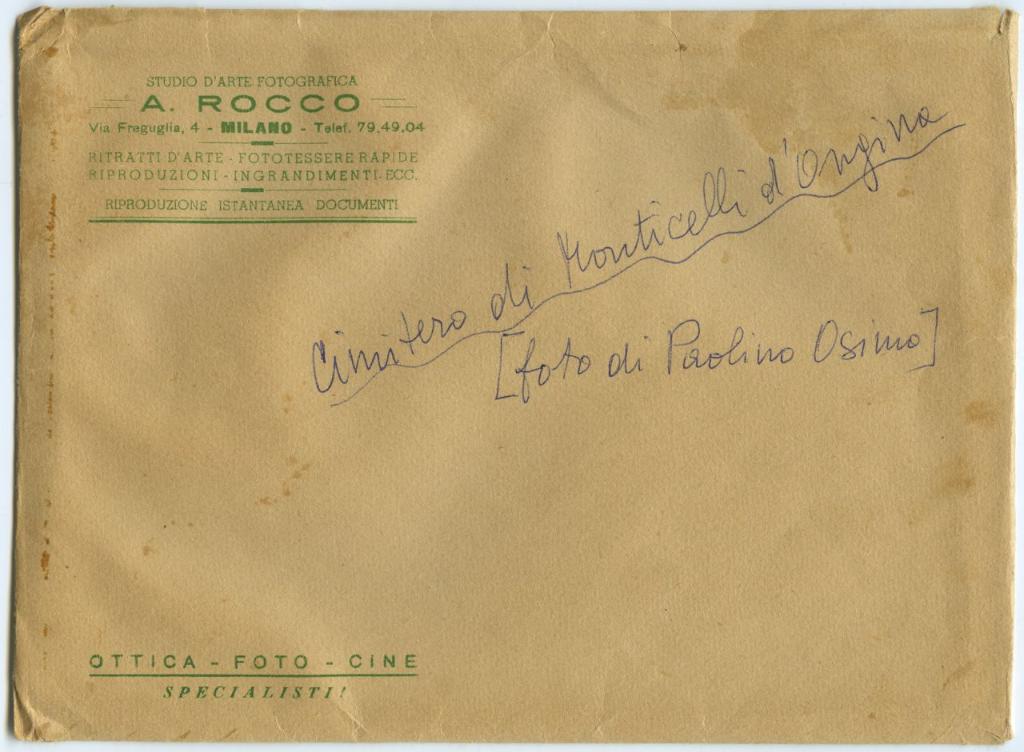 STUDIO D'ARTE FOTOGRAFICA
A. ROCCO
Via Freguglia, 4 - MILANO - Telef. 79.49.04
RITRATTI D'ARTE - FOTOTESSERE RAPIDE
RIPRODUZIONI - INGRANDIMENTI - ECC.
RIPRODUZIONE ISTANTANEA DOCUMENTI
Cimitero di Monticelli d'Ongina
[foto di Paolino Osimo]
OTTICA - FOTO - CINE
SPECIALISTI!